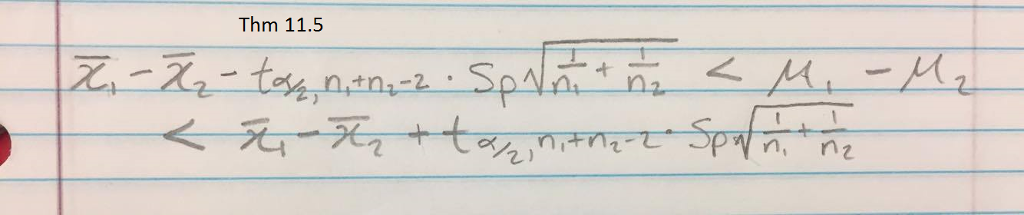 Thm 11.5
x̄₁ - x̄₂ - t_{α/2, n₁+n₂-2} · Sp√(1/n₁ + 1/n₂) < μ₁ - μ₂
< x̄₁ - x̄₂ + t_{α/2, n₁+n₂-2} · Sp√(1/n₁ + 1/n₂)